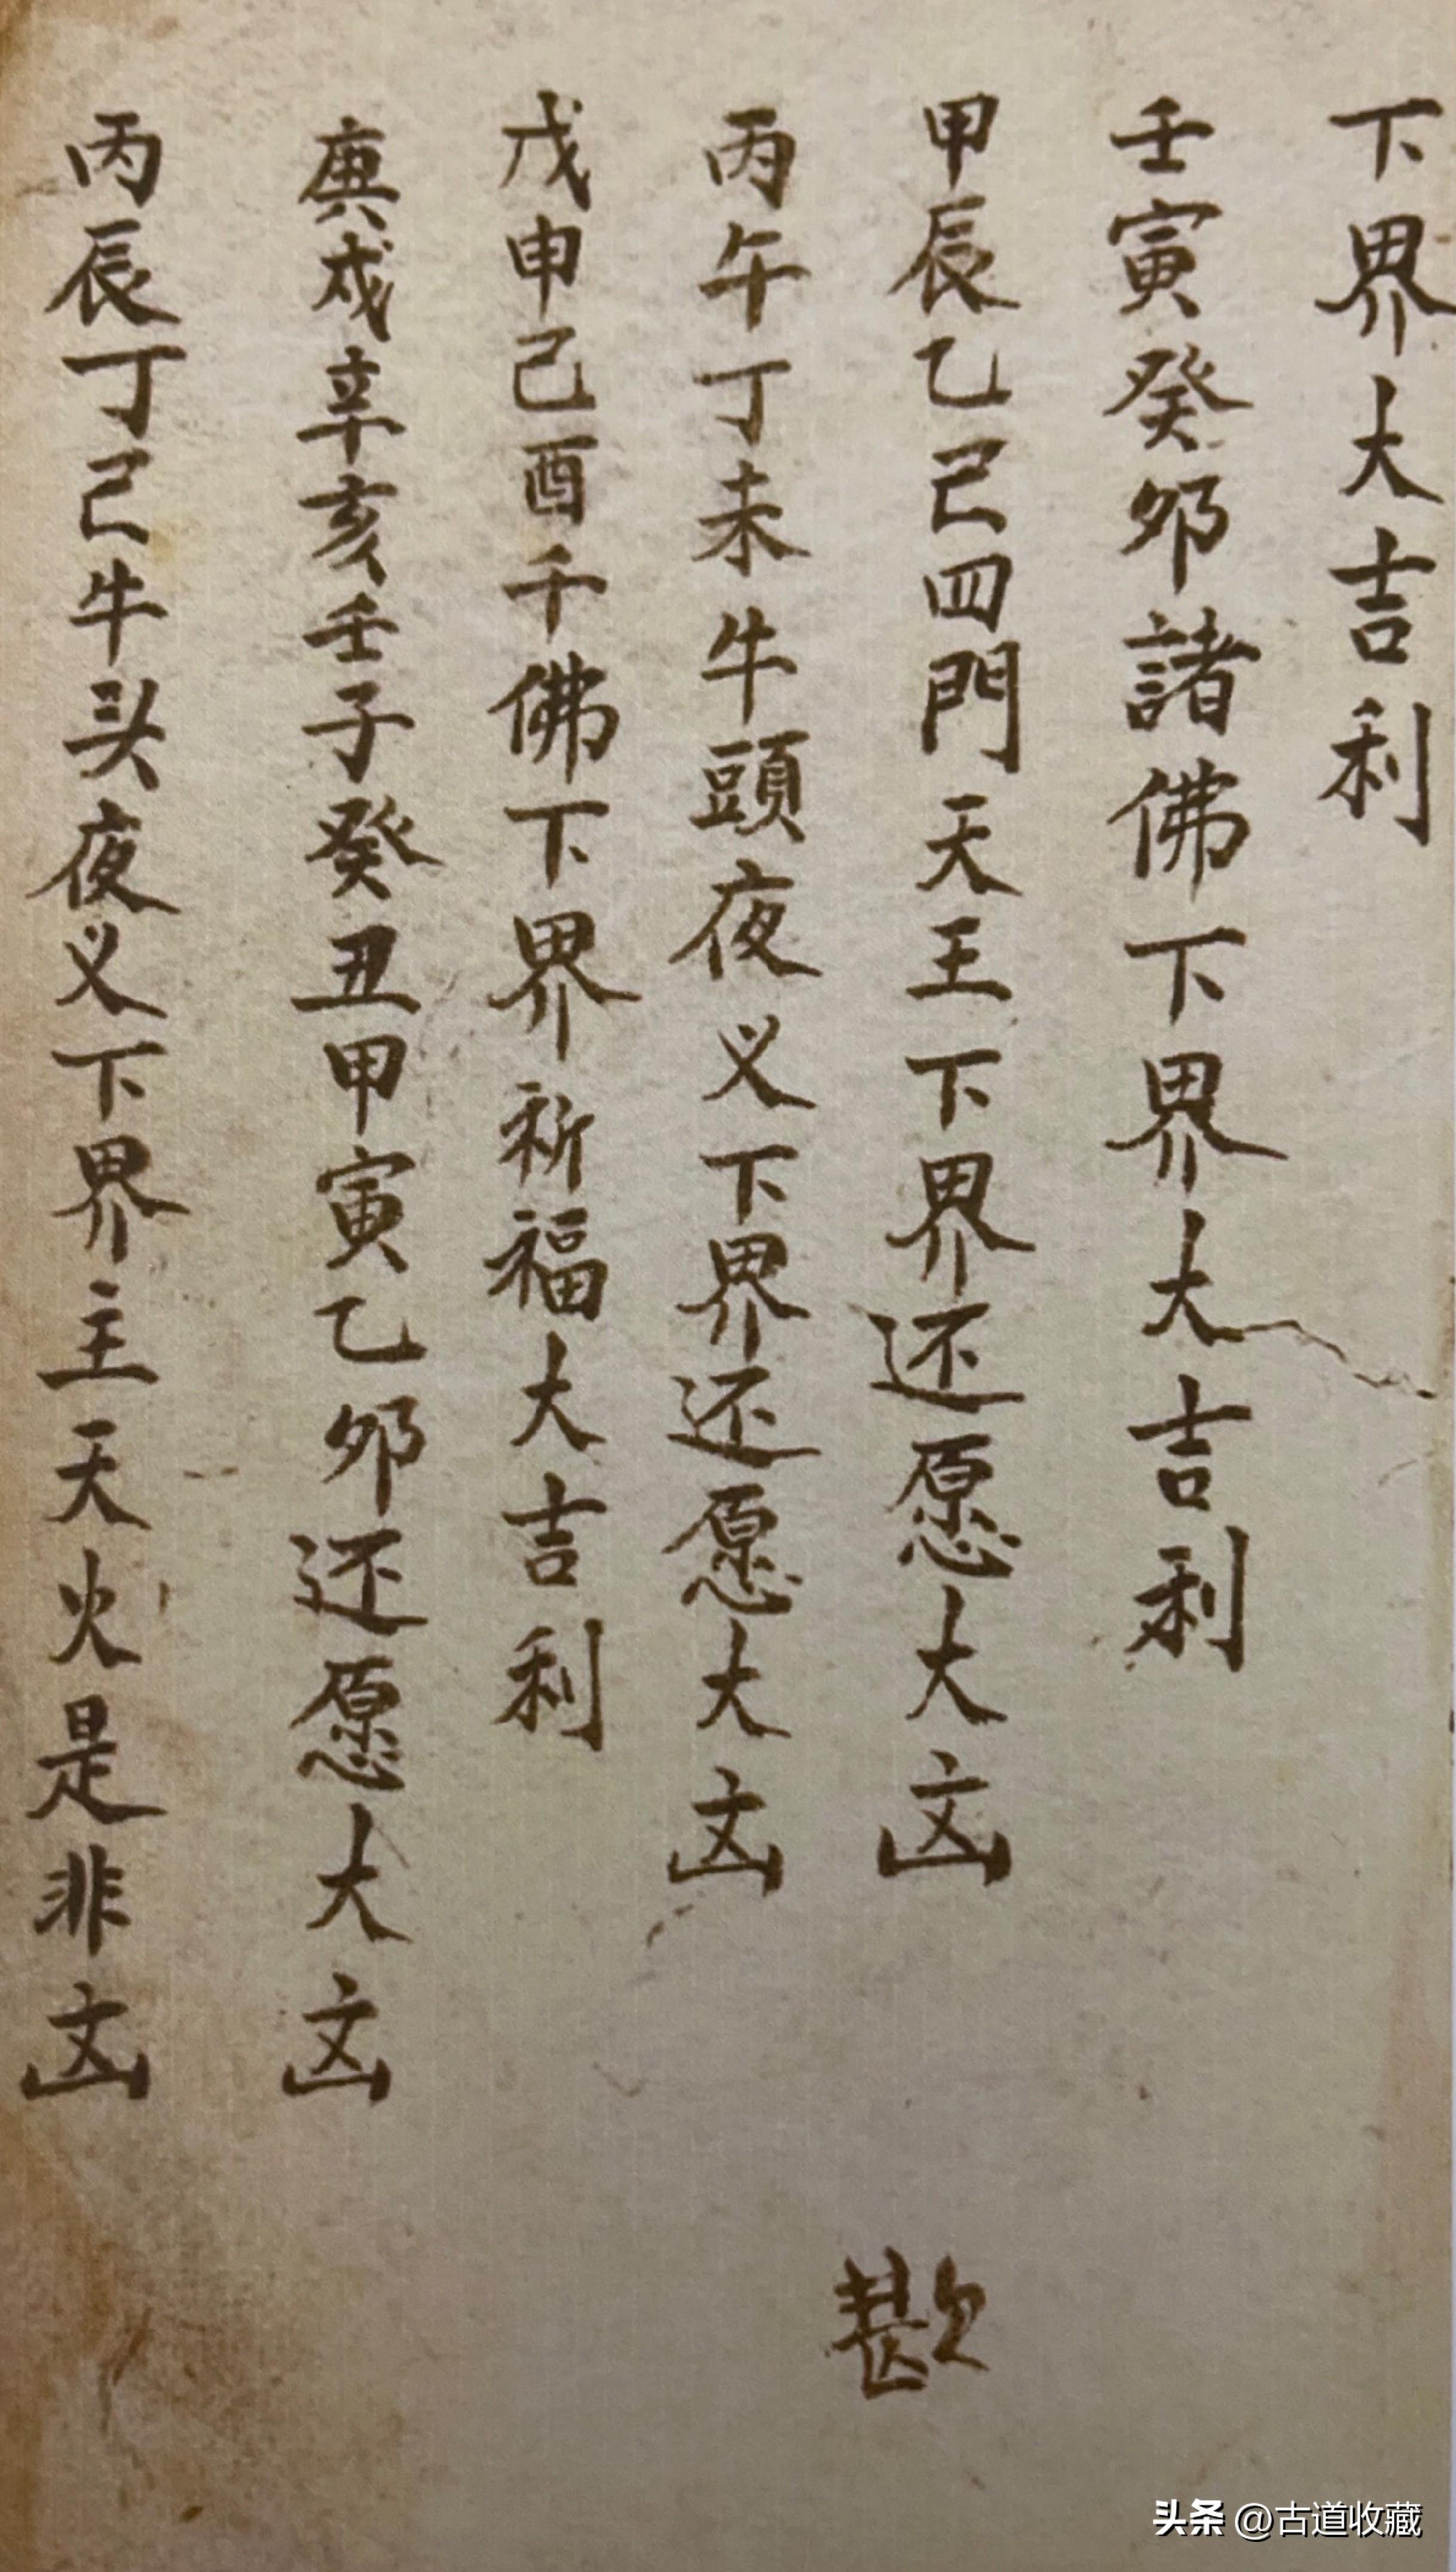 下界大吉利
壬寅癸卯諸佛下界大吉利
甲辰乙巳四門天王下界还愿大凶
丙午丁未牛頭夜义下界还愿大凶
戊申己酉千佛下界祈福大吉利
庚戌辛亥壬子癸丑甲寅乙卯还愿大凶
丙辰丁己牛头夜义下界主天火是非凶
头条 @古道收藏